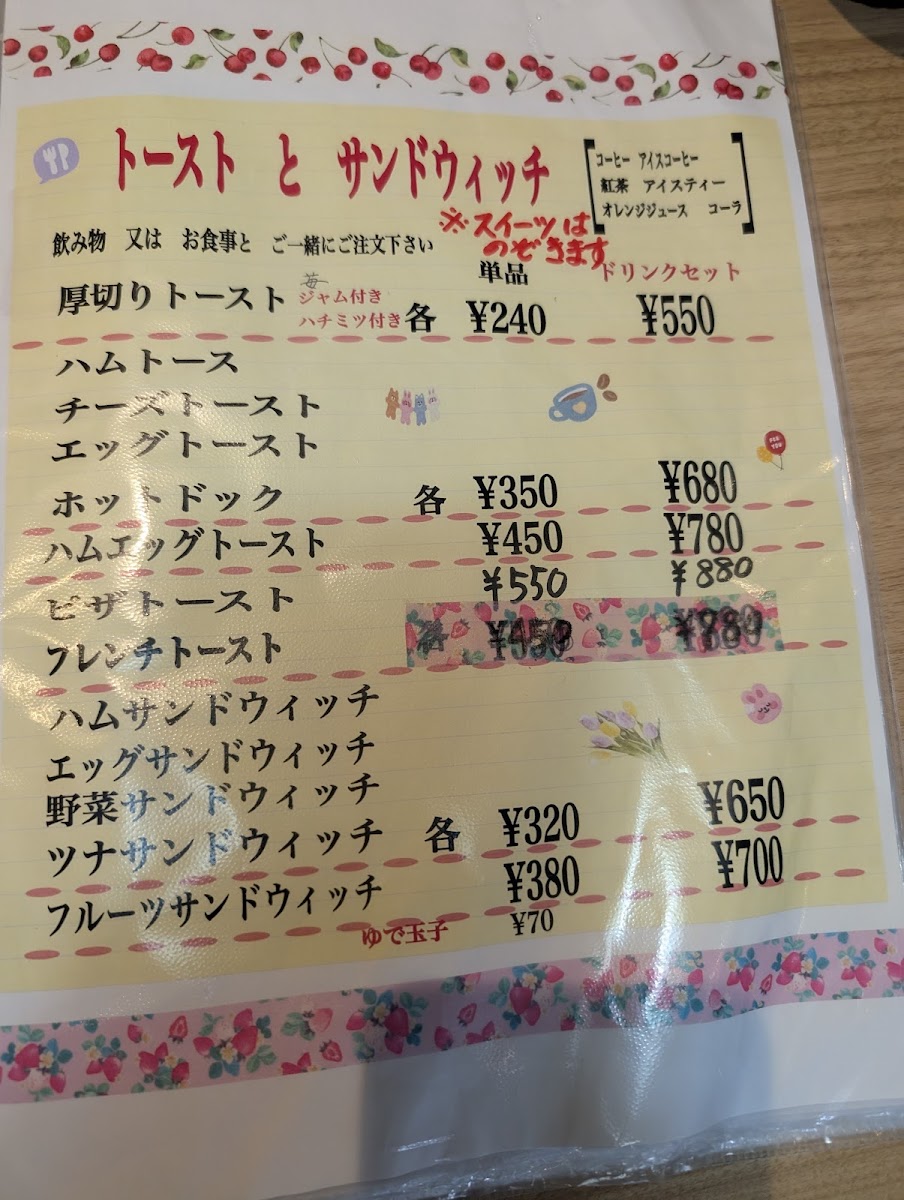 トースト と サンドウィッチ
コーヒー アイスコーヒー
紅茶 アイスティー
オレンジジュース コーラ
飲み物 又は お食事と ご一緒にご注文下さい
※スイーツは
のぞきます
単品 ドリンクセット
厚切りトースト 苺ジャム付き
ハチミツ付き 各 ¥240 ¥550
ハムトース
チーズトースト
エッグトースト
ホットドック 各 ¥350 ¥680
ハムエッグトースト ¥450 ¥780
ピザトースト ¥550 ¥880
フレンチトースト
ハムサンドウィッチ
エッグサンドウィッチ
野菜サンドウィッチ
ツナサンドウィッチ 各 ¥320 ¥650
フルーツサンドウィッチ ¥380 ¥700
ゆで玉子 ¥70